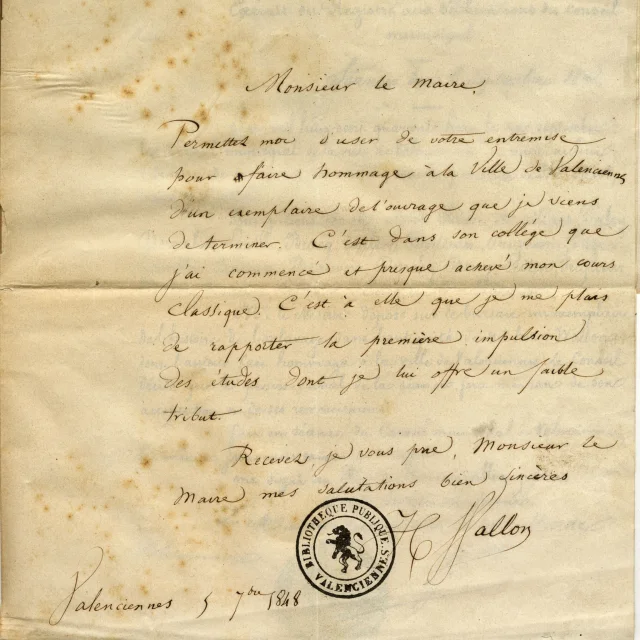 Monsieur le Maire,
Permettez moi d'user de votre entremise
pour faire hommage à la Ville de Valenciennes
d'un exemplaire de l'ouvrage que je viens
de terminer. C'est dans son collège que
j'ai commencé et presque achevé mon cours
classique. C'est à elle que je me plais
de rapporter la première impulsion
des études dont je lui offre un faible
tribut.
Recevez, je vous prie, Monsieur le
Maire mes salutations bien sincères
H Wallon
BIBLIOTHEQUE PUBLIQUE
VALENCIENNES
Valenciennes 5 7bre 1848